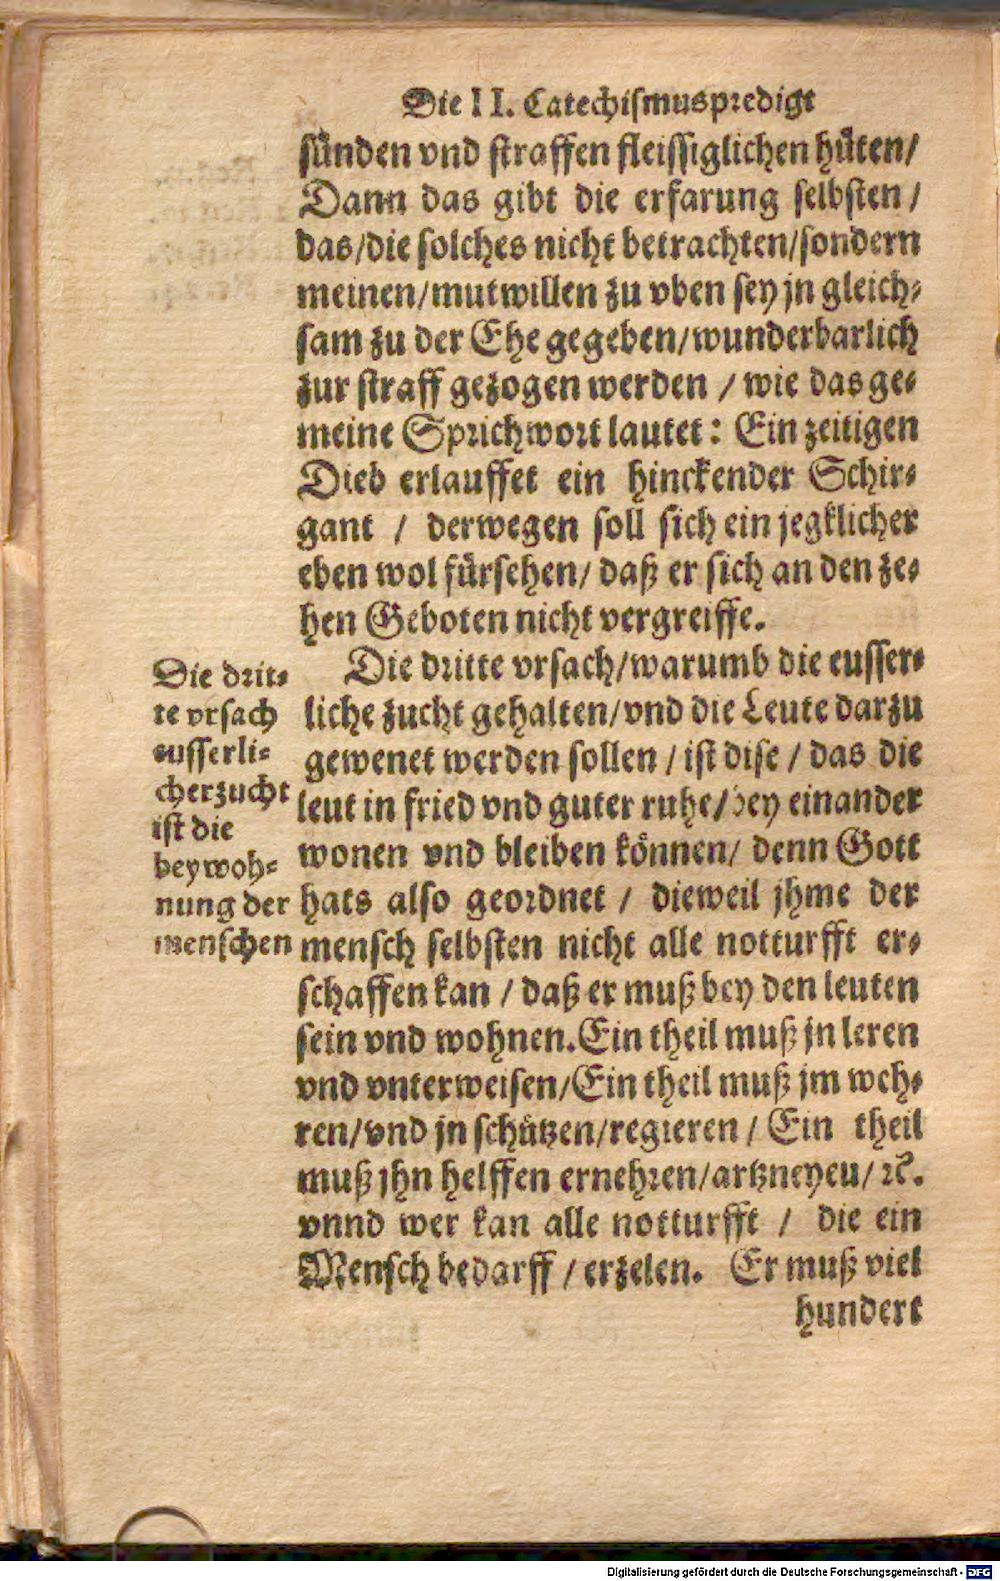 Die II. Catechismuspredigt
sünden vnd straffen fleissiglichen hüten/
Dann das gibt die erfarung selbsten /
das/die solches nicht betrachten/sondern
meinen/mutwillen zu vben sey jn gleich-
sam zu der Ehe gegeben/wunderbarlich
zur straff gezogen werden / wie das ge-
meine Sprichwort lautet: Ein zeitigen
Dieb erlauffet ein hinckender Schir-
gant / derwegen soll sich ein jegklicher
eben wol fürsehen/ daß er sich an den ze-
hen Geboten nicht vergreiffe.
Die dritte vrsach/warumb die eusser-
liche zucht gehalten/vnd die Leute darzu
gewenet werden sollen / ist dise / das die
leut in fried vnd guter ruhe/bey einander
wonen vnd bleiben können/ denn Gott
hats also geordnet / dieweil jhme der
mensch selbsten nicht alle notturfft er-
schaffen kan / daß er muß bey den leuten
sein vnd wohnen. Ein theil muß jn leren
vnd vnterweisen/Ein theil muß jm weh-
ren/vnd jn schützen/regieren / Ein theil
muß jhn helffen ernehren/artzneyeu/ ꝛc.
vnnd wer kan alle notturfft / die ein
Mensch bedarff / erzelen. Er muß viel
hundert
Die drit-
te vrsach
eusserli-
cher zucht
ist die
beywoh-
nung der
menschen
Digitalisierung gefördert durch die Deutsche Forschungsgemeinschaft - DFG